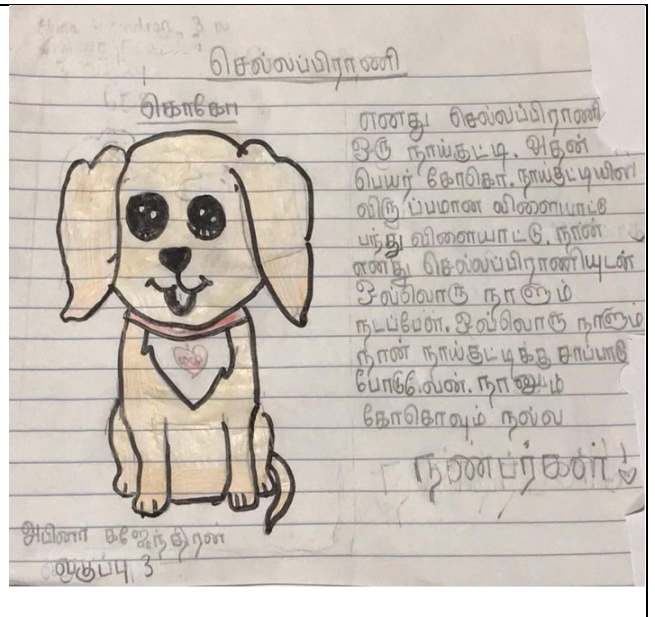 செல்லப்பிராணி
கொகோ
எனது செல்லப்பிராணி
ஒரு நாய்குட்டி. அதன்
பெயர் கோகொ. நாய்குட்டியின்
விருப்பமான விளையாட்டு
பந்து விளையாட்டு. நான்
எனது செல்லப்பிராணியுடன்
ஒவ்வொரு நாளும்
நடப்பேன். ஒவ்வொரு நாளும்
நான் நாய்குட்டிக்கு சாப்பாடு
போடுவேன். நானும்
கோகொவும் நல்ல
நண்பர்கள்!
அபினா கஜேந்திரன்
வகுப்பு 3